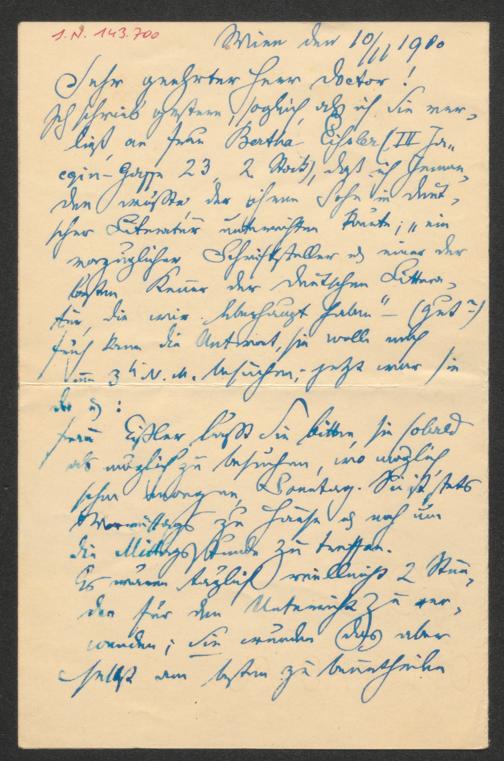 I.N. 143.700
Wien den 10/11 1900
Sehr geehrter Herr Doctor!
Ich schrieb gestern, sogleich als ich Sie ver-
ließ, an Frau Bertha Eißler (III Ja-
cquin-Gasse 23, 2. Stock), daß ich Jeman-
den wüßte der ihren Sohn in deut-
scher Literatur unterrichten könnte; "ein
vorzüglicher Schriftsteller u einer der
besten Kenner der deutschen Littera-
tur, die wir überhaupt haben" – (gut?)
früh kam die Antwort, sie wolle mich
um 3 h N. M. besuchen; jetzt war sie
da u:
Frau Eißler läßt Sie bitten, sie sobald
als möglich zu besuchen, wo möglich
schon morgen, Sonntag. Sie ist stets
Vormittags zu Hause u noch um
die Mittagsstunde zu treffen.
Es wären täglich vielleicht 2 Stun-
den für den Unterricht zu ver-
wenden; Sie würden das aber
selbst am besten zu beurtheilen